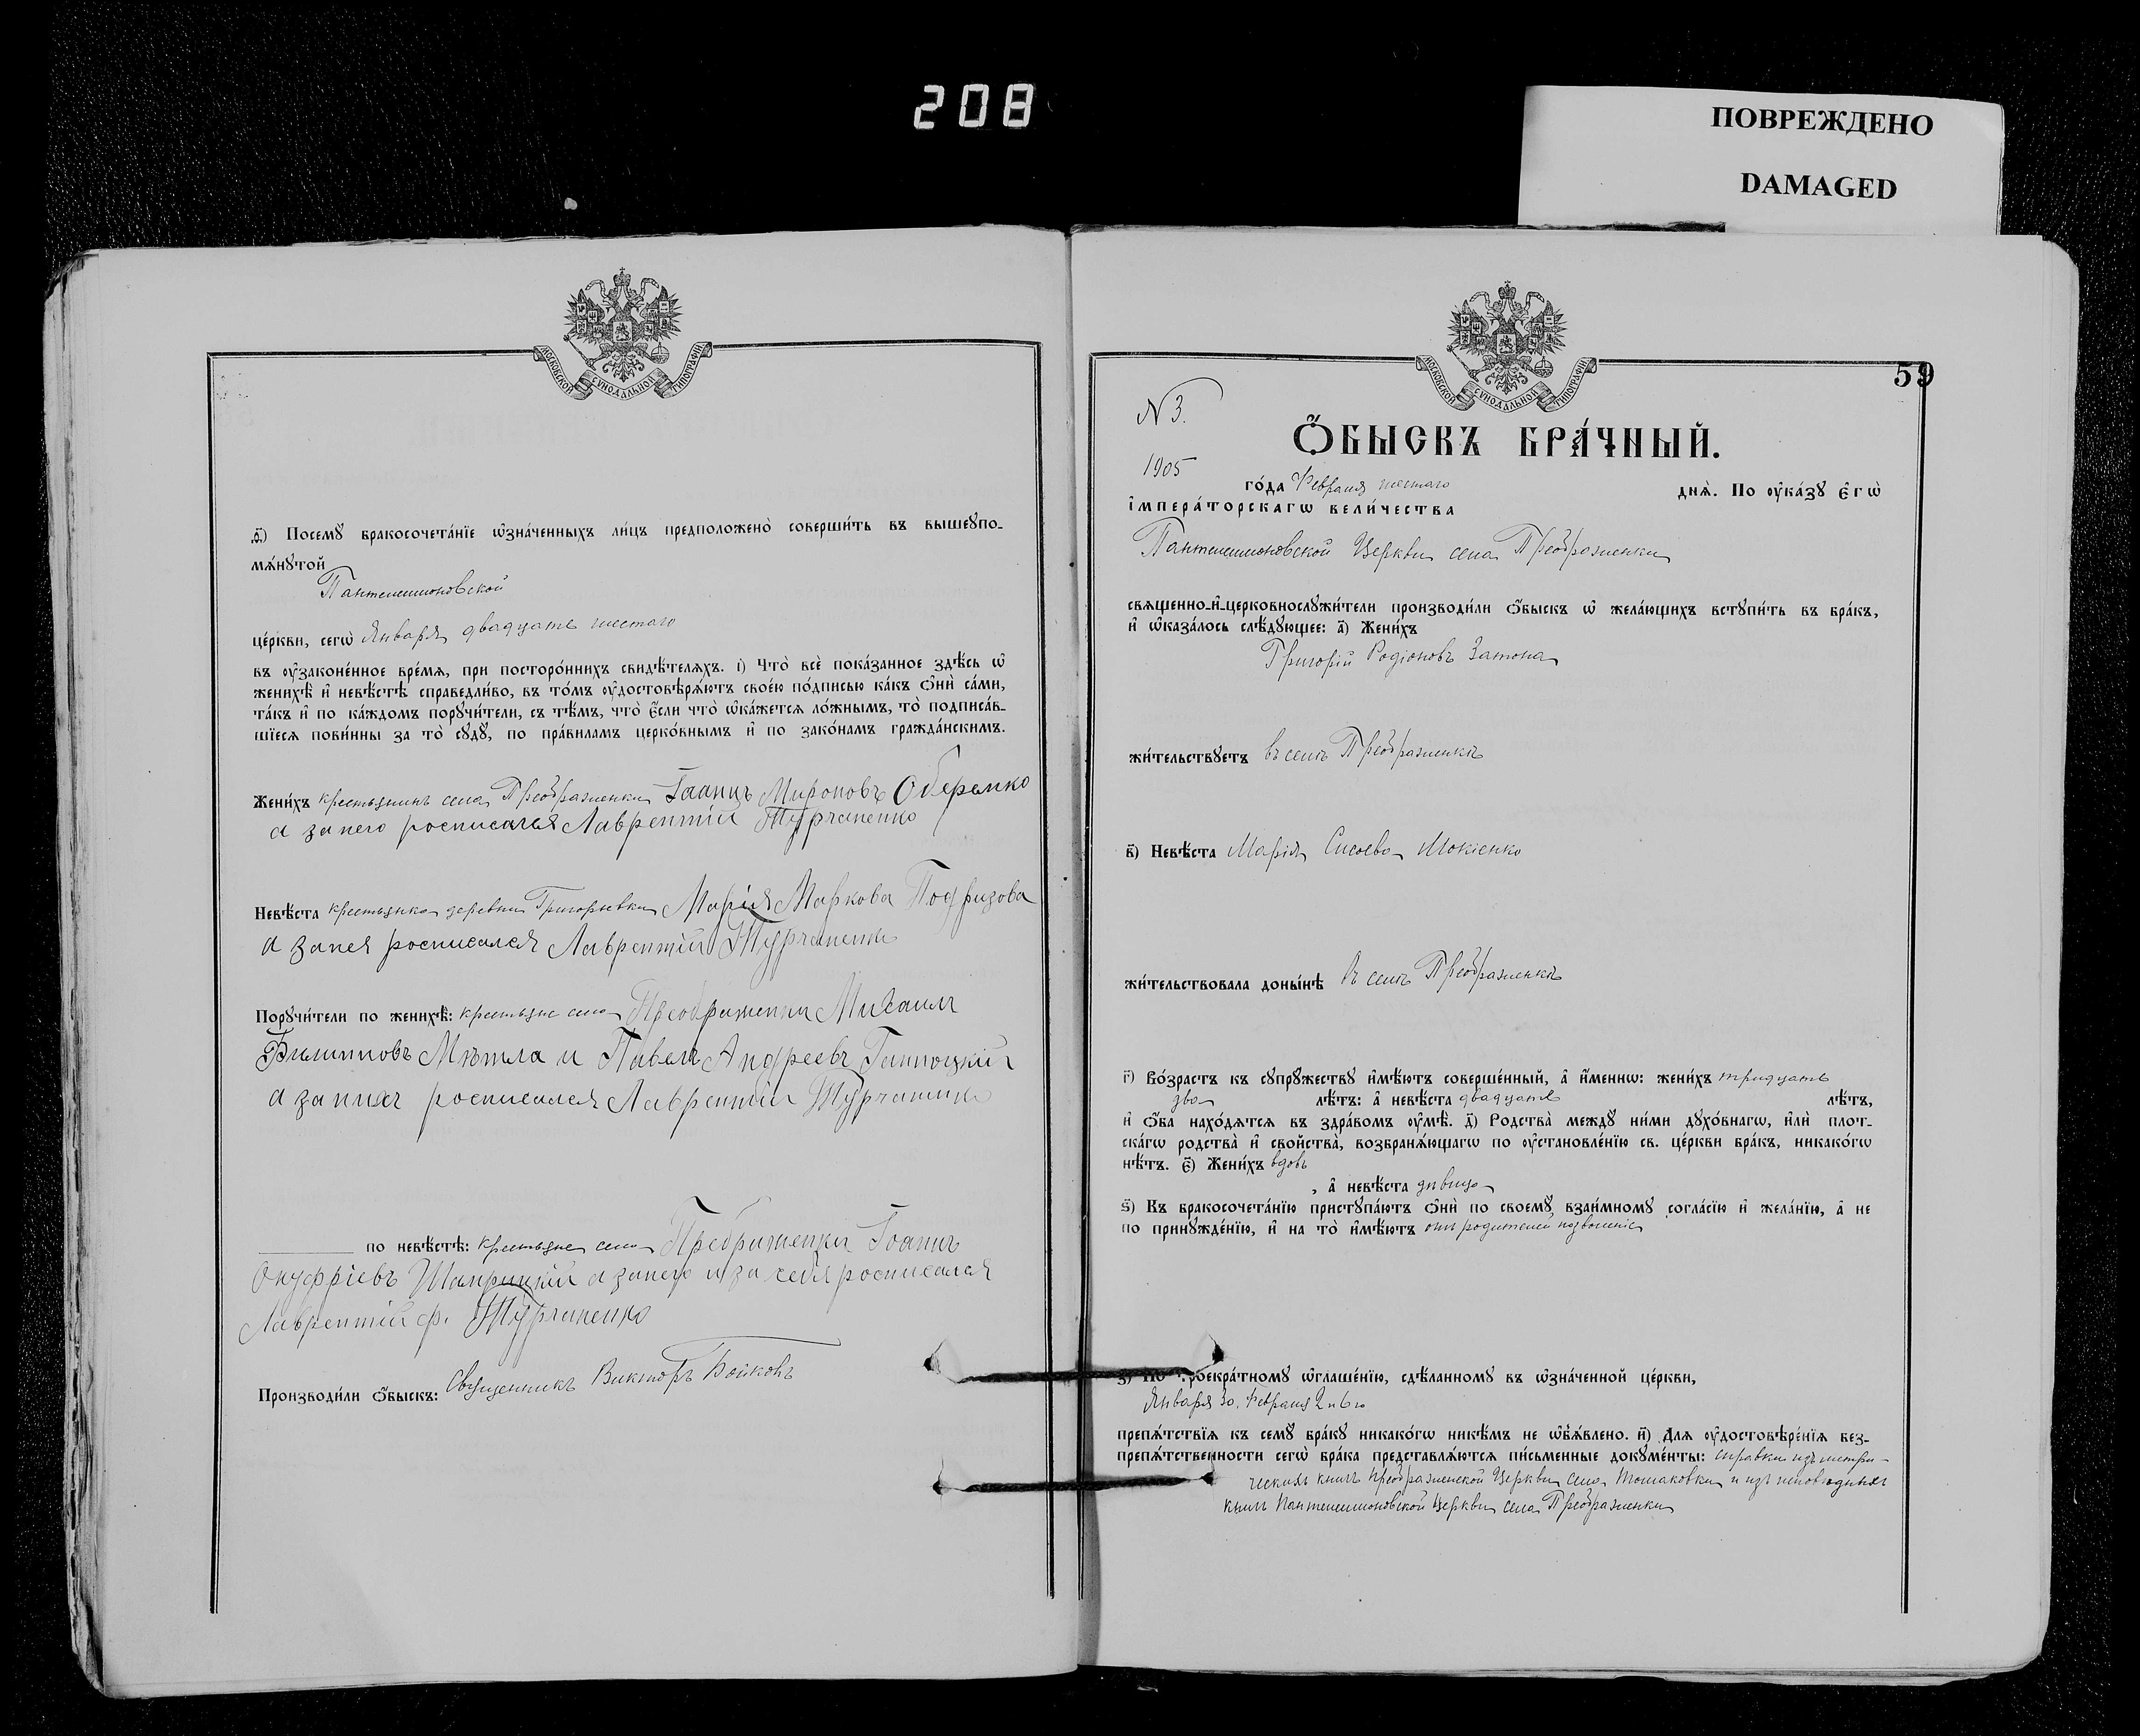 208
ПОВРЕЖДЕНО
DAMAGED
МОСКОВСКОЙ СѴНОДАЛЬНОЙ ТИПОГРАФІИ
ѳ҃) Посемꙋ̀ бракосочета́нїе ѡ҆зна́ченныхъ ли́цъ предположено̀ соверши́ть въ вышеꙋпо-
мѧ́нꙋтой
Пантелеимоновской
це́ркви, сегѡ̀ Января двадцать шестаго
въ ᲂу҆законе́нное вре́мѧ, при посторо́ннихъ свидѣ́телѧхъ. і҃) Что̀ всѐ пока́занное здѣ́сь ѡ҆
женихѣ̀ и҆ невѣ́стѣ справедли́во, въ то́мъ ᲂу҆достовѣрѧ́ютъ свое́ю по́дписью ка́къ ѻ҆нѝ са́ми,
та́къ и҆ по ка́ждомъ порꙋчи́тели, съ тѣ́мъ, что̀ є҆́сли что̀ ѡ҆ка́жетсѧ ло́жнымъ, то̀ подписа́в-
шїесѧ пови́нны за то̀ сꙋдꙋ̀, по пра́виламъ церко́внымъ и҆ по зако́намъ гражда́нскимъ.
Жени́хъ крестьянинъ села Преображенки Іоаннъ Мироновъ Оберемко
а за него росписался Лаврентій Турчаненко
Невѣ́ста крестьянка деревни Григорьевки Марія Маркова Подризова
а за нея росписался Лаврентій Турчаненко
Порꙋчи́тели по женихѣ̀: крестьяне села Преображенки Михаилъ
Филипповъ Мѣтла и Павелъ Андреевъ
а за нихъ росписался Лаврентій Турчаненко
по невѣ́стѣ: крестьяне села Преображенки Іоаннъ
Онуфріевъ а за него и за себя росписался
Лаврентій Ф. Турчаненко
Производи́ли ѻ҆́быскъ: Священникъ Викторъ Бойковъ
МОСКОВСКОЙ СѴНОДАЛЬНОЙ ТИПОГРАФІИ
59
N 3.
Ѻ҆́БЫСКЪ БРА́ЧНЫЙ.
1905
го́да Февраля шестаго днѧ̀. По ᲂу҆ка́зꙋ є҆гѡ̀
і҆мпера́торскагѡ вели́чества
Пантелеимоновской Церкви села Преображенки
свѧщенно-и҆-церковнослꙋжи́тели производи́ли ѻ҆́быскъ ѡ҆ жела́ющихъ встꙋпи́ть въ бра́къ,
и҆ ѡ҆каза́лось слѣ́дꙋющее: а҃) Жени́хъ
Григорій Родіоновъ Затона
жи́тельствꙋетъ въ селѣ Преображенкѣ
в҃) Невѣ́ста Марія Сисоева Мокіенко
жи́тельствовала доны́нѣ въ селѣ Преображенкѣ
г҃) Во́зрастъ къ сꙋпрꙋ́жествꙋ и҆мѣ́ютъ соверше́нный, а҆ и҆́меннѡ: жени́хъ тридцать
два лѣ́тъ: а҆ невѣ́ста двадцать лѣ́тъ,
и҆ ѻ҆́ба нахо́дѧтсѧ въ здра́вомъ ᲂу҆мѣ̀. д҃) Родства̀ междꙋ̀ ни́ми дꙋхо́внагѡ, и҆лѝ плот-
ска́гѡ родства̀ и҆ свойства̀, возбранѧ́ющагѡ по ᲂу҆становле́нїю св. це́ркви бра́къ, никако́гѡ
нѣ́тъ. є҃) Жени́хъ вдовъ
, а҆ невѣ́ста дѣвица
ѕ҃) Къ бракосочета́нїю пристꙋпа́ютъ ѻ҆нѝ по своемꙋ̀ взаи́мномꙋ согла́сїю и҆ жела́нїю, а҆ не
по принꙋжде́нїю, и҆ на то̀ и҆мѣ́ютъ отъ родителей позволеніе
з҃) По троекра́тномꙋ ѡ҆глаше́нїю, сдѣ́ланномꙋ въ ѡ҆зна́ченной це́ркви,
Января 30. Февраля 2 и 6 го
препѧ́тствїѧ къ семꙋ̀ бра́кꙋ никако́гѡ никѣ́мъ не ѡ҆б̾ѧ́влено. и҃) Для ᲂу҆достовѣре́нїѧ без-
препѧ́тственности сегѡ̀ бра́ка представлѧ́ются пи́сьменные докꙋме́нты: справки изъ метри-
ческихъ книгъ Преображенской Церкви села Томаковки и изъ исповѣдныхъ
книгъ Пантелеимоновской Церкви села Преображенки